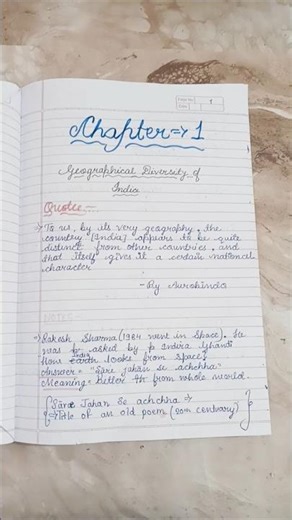 Page No. 1
Date
Chapter => 1
Geographical Diversity of
India
Quote :-
→ To us, by its very geography, the
country [India] appears to be quite
distinct from other countries, and
that itself gives it a certain national
character
- By Aurobindo
NOTES :-
→ Rakesh Sharma (1984 went in Space). He
was asked by p Indira Ghandi
How India looks from space
Answer = "Sare jahan se achcha"
Meaning = Better th from whole world.
{ Sāre Jahan Se achchha =>
=> Title of an old poem (20th centuary) }